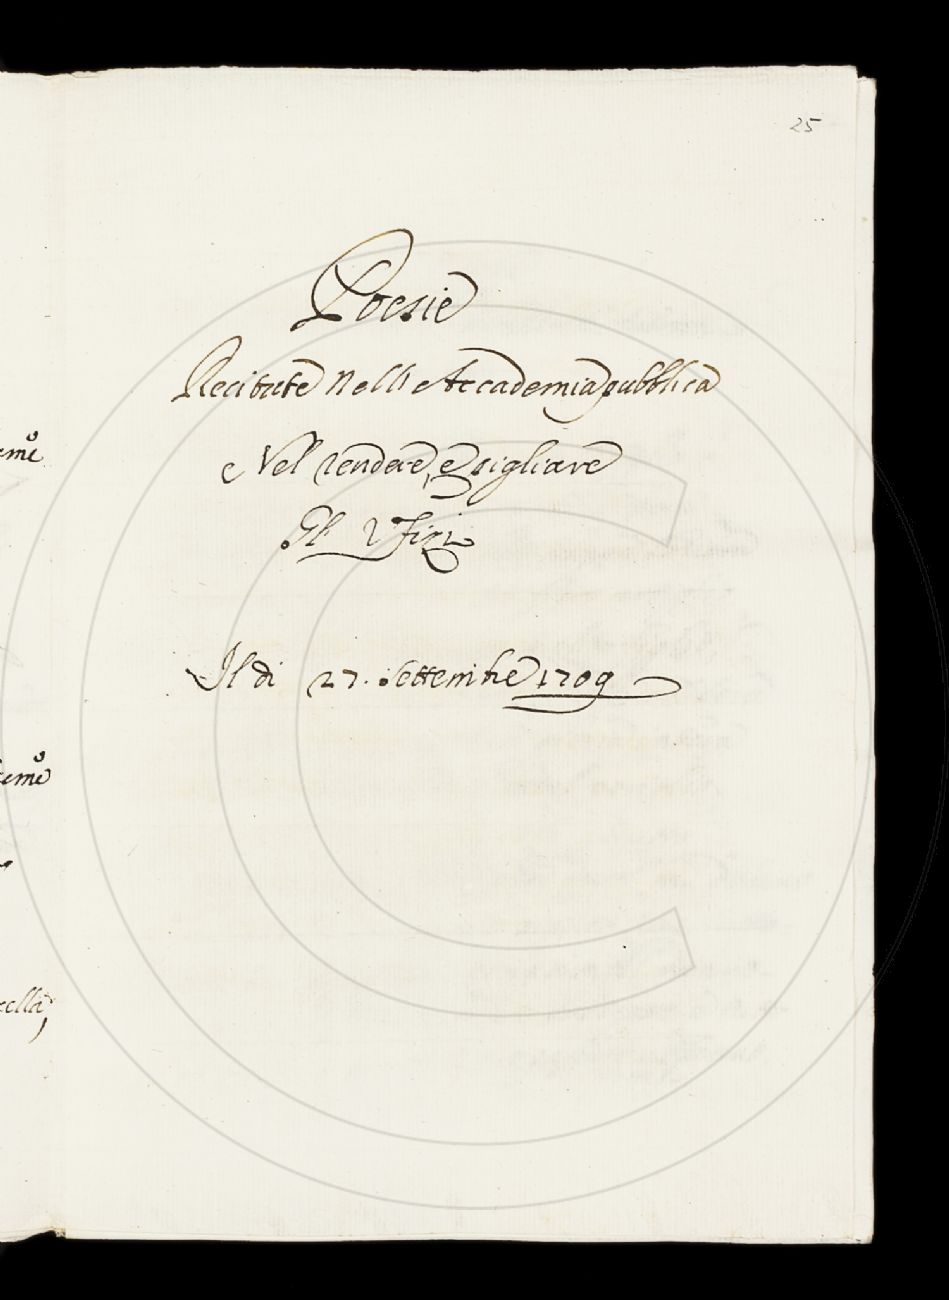 25
Poesie
Recitate nell' Accademia pubblica
Nel rendere, e pigliare
Gl' Ufizi
Il dì 27. Settembre 1709